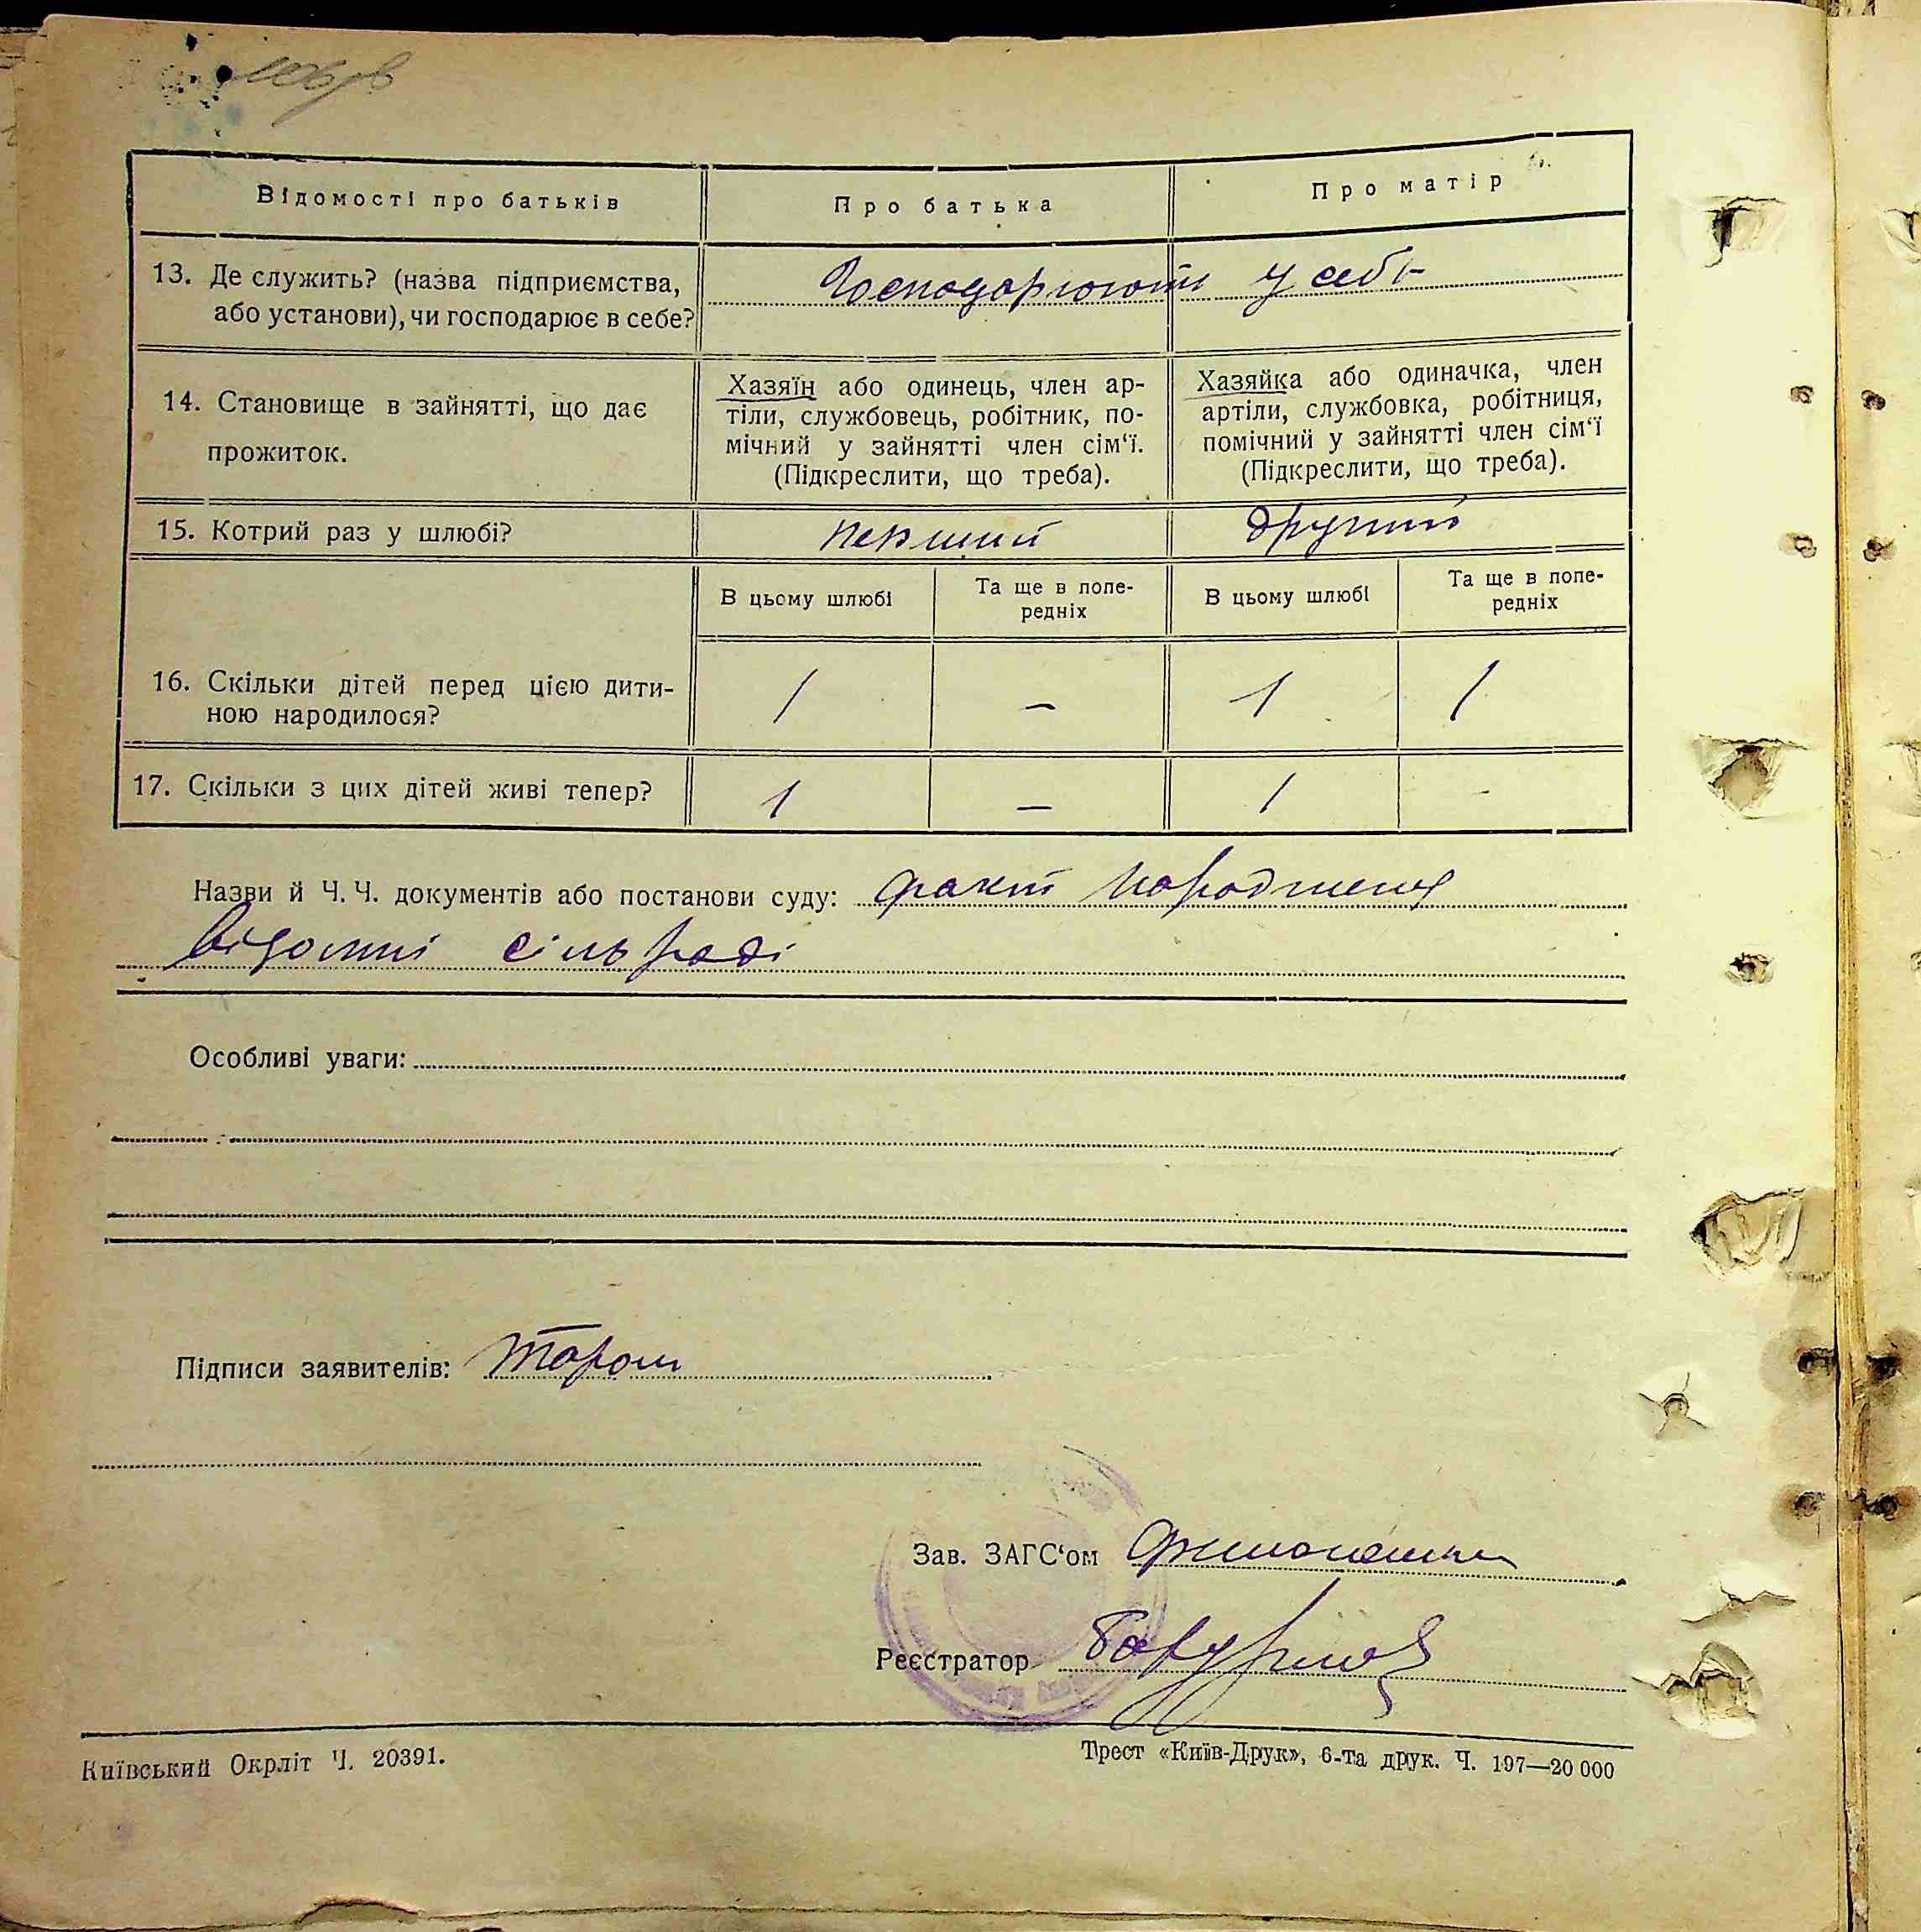 Відомості про батьків
Про батька
Про матір
13. Де служить? (назва підприємства,
або установи), чи господарює в себе?
Господарюють у себе
14. Становище в зайнятті, що дає
прожиток.
Хазяїн або одинець, член ар-
тіли, службовець, робітник, по-
мічний у зайнятті член сім‘ї.
(Підкреслити, що треба).
Хазяйка або одиначка, член
артіли, службовка, робітниця,
помічний у зайнятті член сім‘ї
(Підкреслити, що треба).
15. Котрий раз у шлюбі?
перший
другий
В цьому шлюбі
Та ще в попе-
редніх
В цьому шлюбі
Та ще в попе-
редніх
16. Скільки дітей перед цією дити-
ною народилося?
1
—
1
1
17. Скільки з цих дітей живі тепер?
1
—
1
-
Назви й Ч. Ч. документів або постанови суду: факт народження
відомий сільраді
Особливі уваги:
Підписи заявителів:
Зав. ЗАГС‘ом
Реєстратор
Київський Окрліт Ч. 20391.
Трест «Київ-Друк», 6-та друк. Ч. 197—20 000